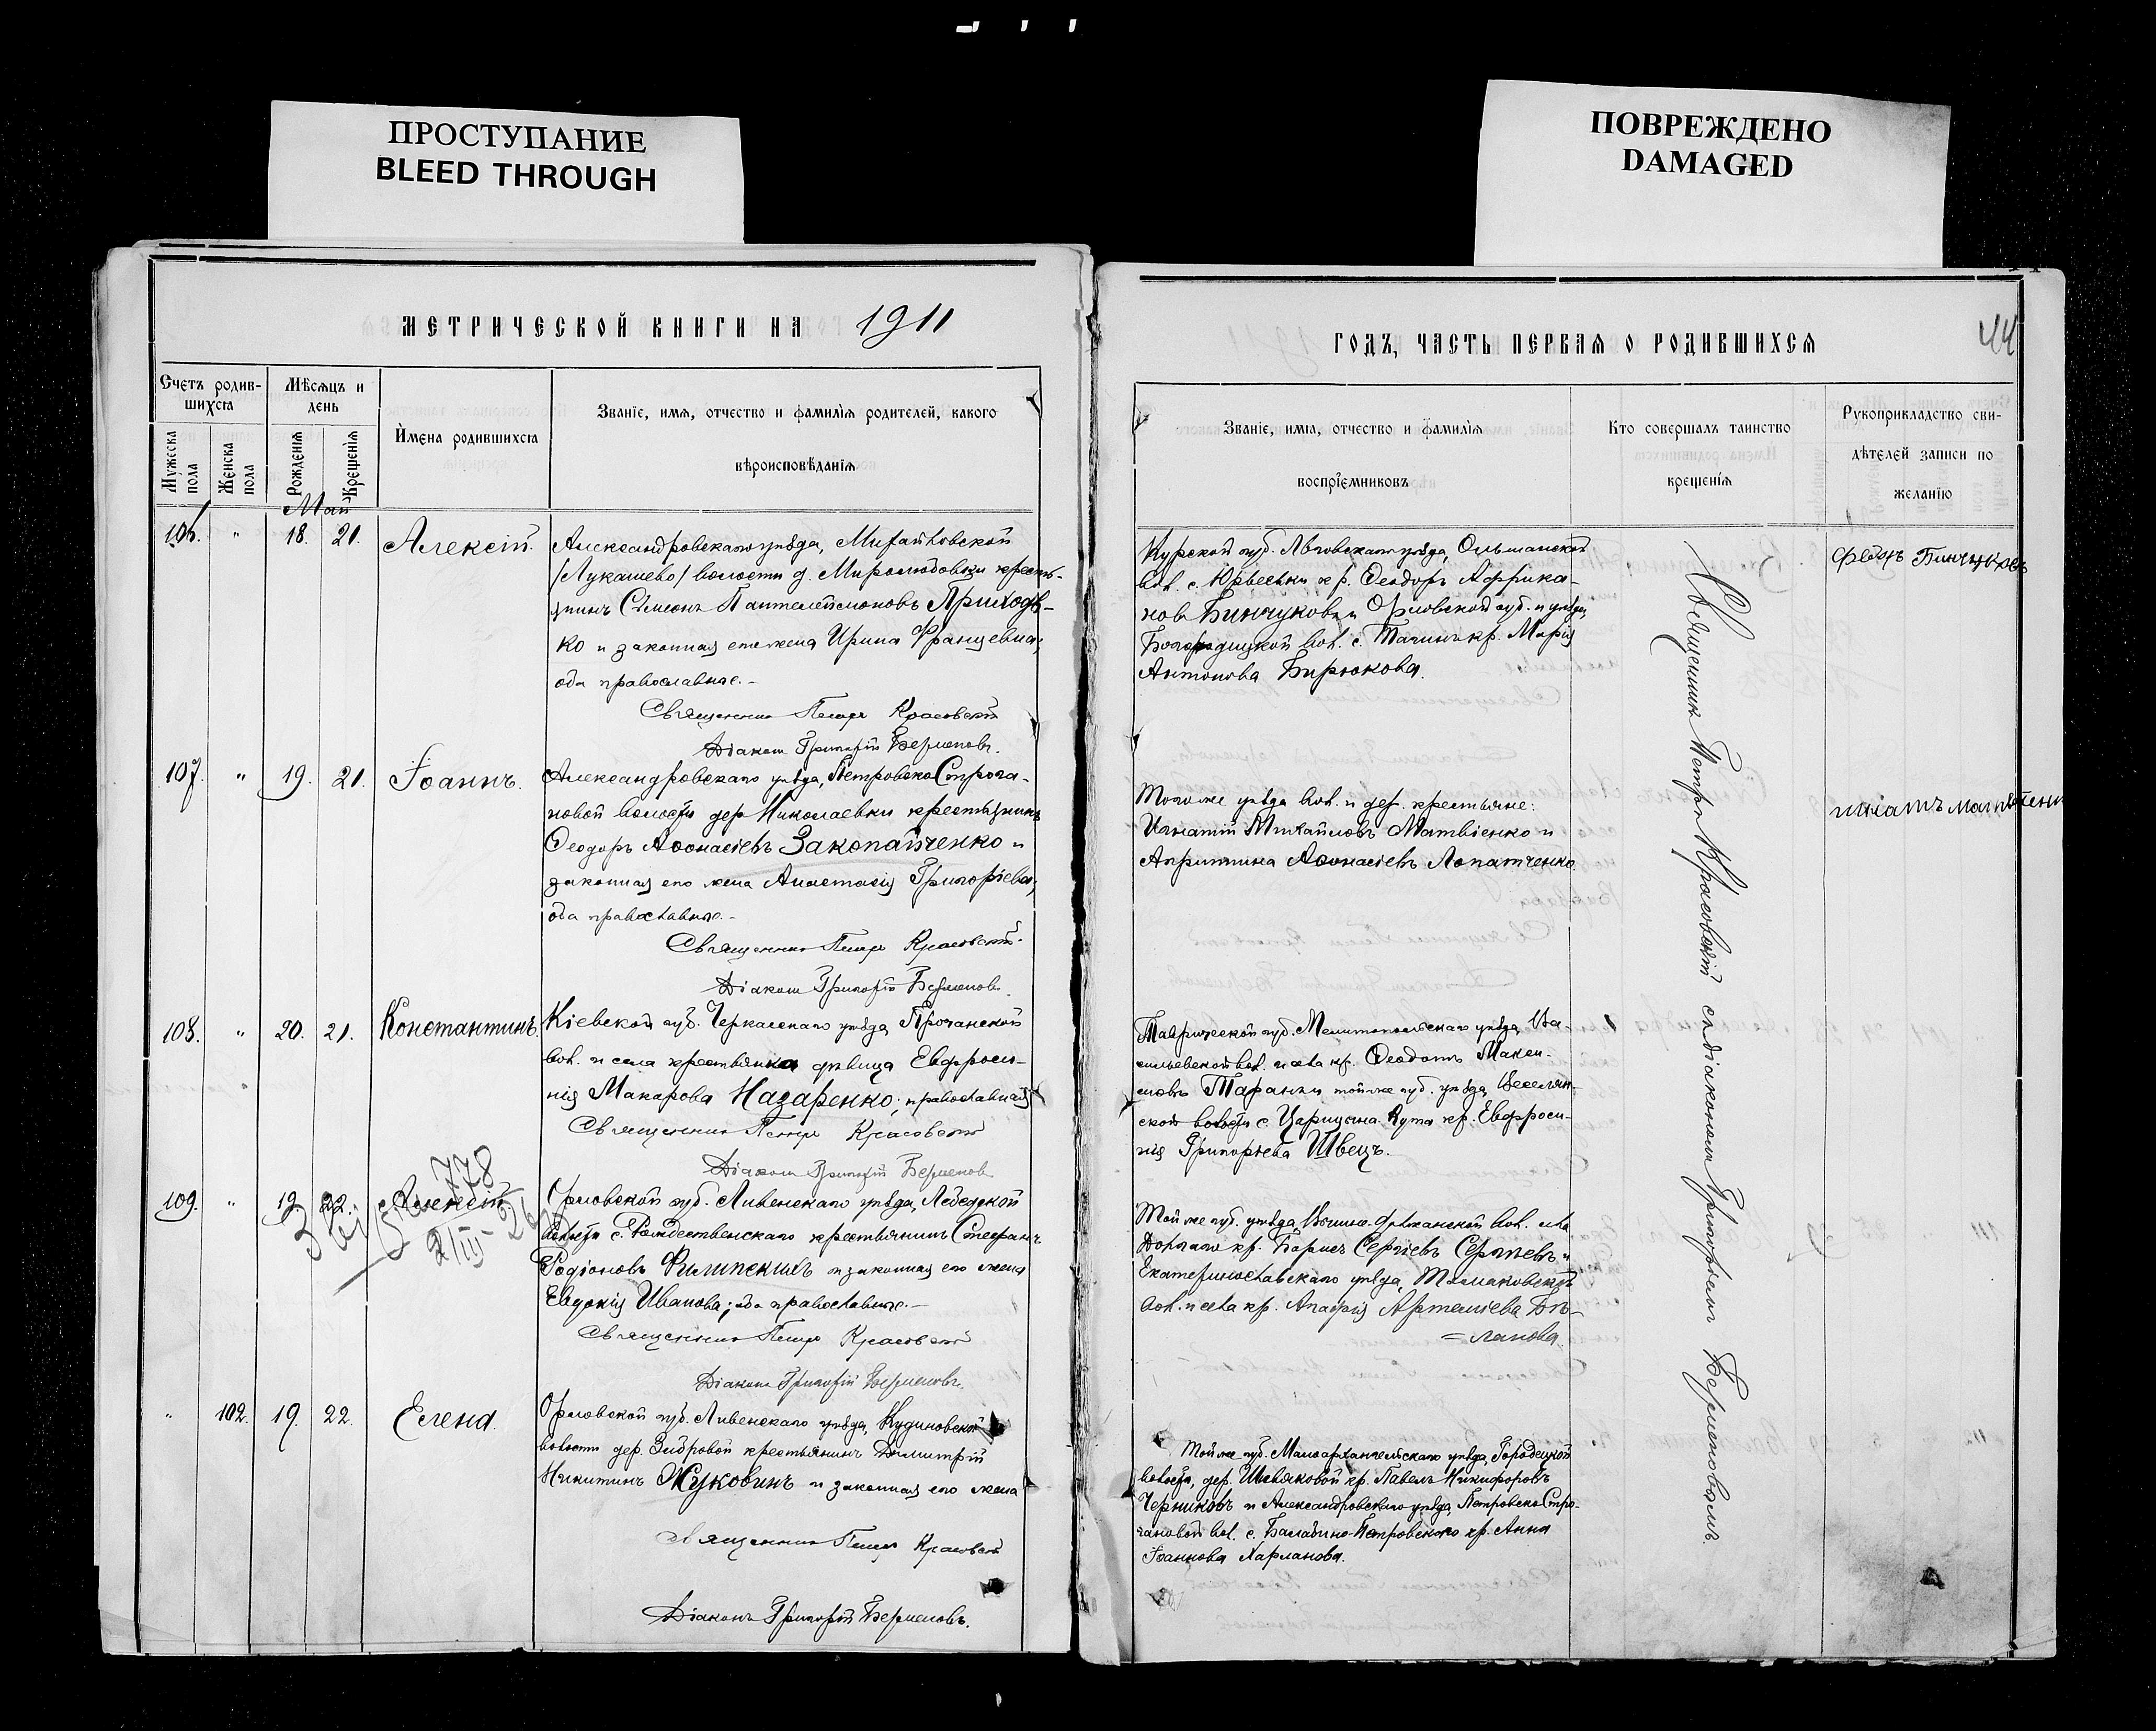 ПРОСТУПАНИЕ
BLEED THROUGH
ПОВРЕЖДЕНО
DAMAGED
МЕТРИЧЕСКОЙ КНИГИ НА 1911
Счетъ родив-
шихся
Мѣсяцъ и
день
Мужеска
пола
Женска
пола
Рожденія
Крещенія
Имена родившихся
Званіе, имя, отчество и фамилія родителей, какого
вѣроисповѣданія
Май
106. " 18. 21. Алексій.
Александровскаго уѣзда, Михайловской
/Лукашево/ волости д. Миролюбовки кресть-
янинъ Сѵмеонъ Пантелеймоновъ Приходь-
ко и законная его жена Ирина Францевна,
оба православные.-
Священникъ Петръ Красовскій
Діаконъ Григорій Берменовъ.
107. " 19. 21. Іоаннъ.
Александровскаго уѣзда, Петровско Строга-
новой волости дер Николаевки крестьянинъ
Ѳеодоръ Аѳонасіевъ Закопайченко и
законная его жена Анастасія Григоріева,
оба православные.-
Священникъ Петръ Красовскій.
Діаконъ Григорій Берменовъ.
108. " 20. 21. Константинъ.
Кіевской губ. Черкасскаго уѣзда
вол. и села крестьянка дѣвица Евфроси-
нія Макарова Назаренко; православная
Священникъ Петръ Красовскій
Діаконъ Григорій Берменовъ
109. " 19. 22. Алексій
778
Орловской губ. Ливенскаго уѣзда,
волости с. Рождественскаго крестьянинъ Стефанъ
Родіоновъ Филипскихъ и законная его жена
Евдокія Иванова; оба православные.-
Священникъ Петръ Красовскій
Діаконъ Григорій Берменовъ.
" 102. 19. 22. Елена.
Орловской губ. Ливенскаго уѣзда, Кудиновской
волости дер. Зибровой крестьянинъ Димитрій
Никитинъ Жуковинъ и законная его жена
Священникъ Петръ Красовскій
Діаконъ Григорій Берменовъ.
ГОДЪ, ЧАСТЬ ПЕРВАЯ О РОДИВШИХСЯ
44
Званіе, имя, отчество и фамилія
воспріемниковъ
Кто совершалъ таинство
крещенія
Рукоприкладство сви-
дѣтелей записи по
желанію
Курской губ. Льговскаго уѣзда, Ольшанской
вол. с. кр. Ѳеодоръ Африка-
новъ Бинчуковъ и Орловской губ. и уѣзда,
Богородицкой вол. с. кр. Марія
Антонова Бирюкова.
Ѳедоръ Бинчуковъ
Тогоже уѣзда вол. и дер. крестьяне:
Игнатій Михайловъ Матвіенко и
Агриппина Аѳонасіевъ Лопатченко.
игнатъ
Таврической губ. Мелитопольскаго уѣзда, Ва-
сильевской вол. и села кр. Ѳеодотъ Макси-
мовъ Таранъ и тойже губ. уѣзда, Веселян-
ской волости с. Царицына Кута кр. Евфроси-
нія Григорьева Швецъ.
Тойже губ. уѣзда, вол. села
Долгаго кр. Борисъ Сергіевъ Сергѣевъ и
Екатеринославскаго уѣзда, Томаковской
вол. и села кр. Агафія Артеміева Бѣ-
=ланова.
Тойже губ. Малоархангельскаго уѣзда, Городецкой
волости, дер. кр. Павелъ Никифоровъ
Черниковъ и Александровскаго уѣзда, Петровско Стро-
гановой вол. с. Балабино-Петровскаго кр. Анна
Іоаннова Харланова.
Священникъ Петръ Красовскій съ діакономъ Григоріемъ Берменовымъ.